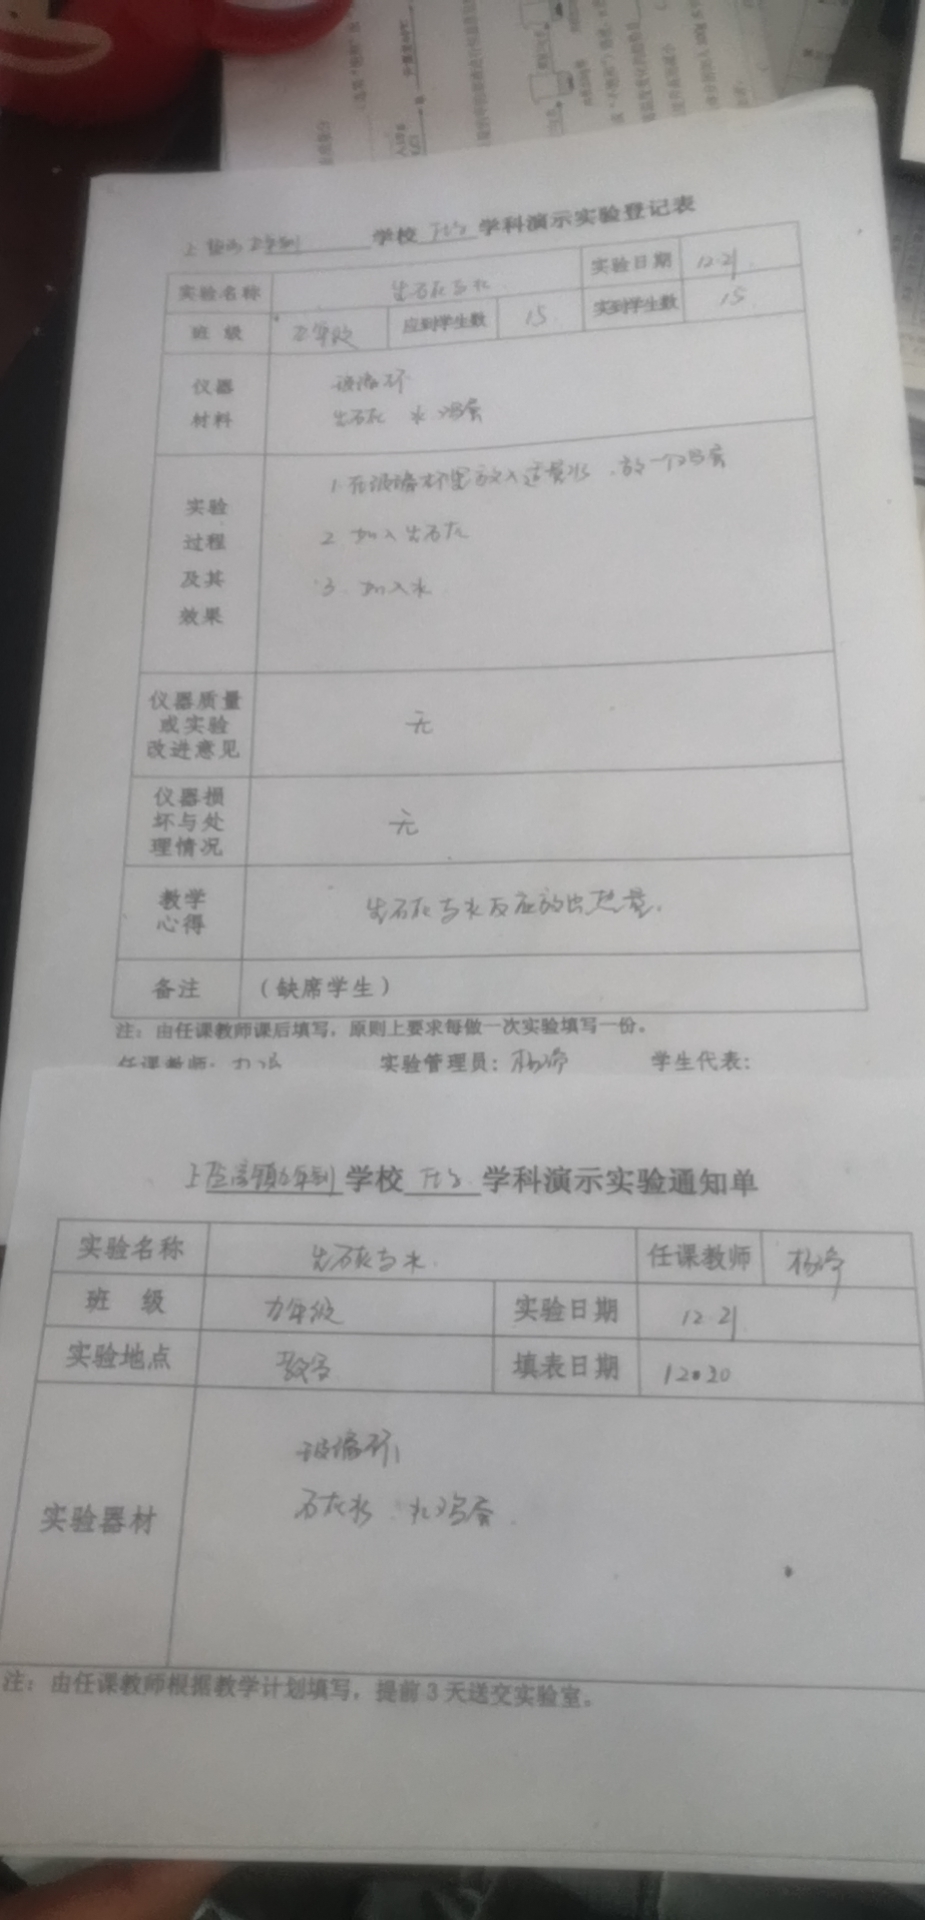 学校 学科演示实验登记表
实验名称 生石灰与水 实验日期 12.21
班 级 九年级 应到学生数 15 实到学生数 15
仪器
材料
玻璃杯
生石灰 水 鸡蛋
实验
过程
及其
效果
1.在玻璃杯里放入适量水,放一个鸡蛋
2 加入生石灰
3. 加入水
仪器质量
或实验
改进意见
无
仪器损
坏与处
理情况
无
教学
心得
生石灰与水反应放出热量.
备注 (缺席学生)
注:由任课教师课后填写,原则上要求每做一次实验填写一份。
任课教师: 实验管理员: 学生代表:
学校 学科演示实验通知单
实验名称 生石灰与水. 任课教师
班 级 九年级 实验日期 12.21
实验地点 教室 填表日期 12.20
实验器材
玻璃杯
石灰水.水鸡蛋.
注:由任课教师根据教学计划填写,提前3天送交实验室。